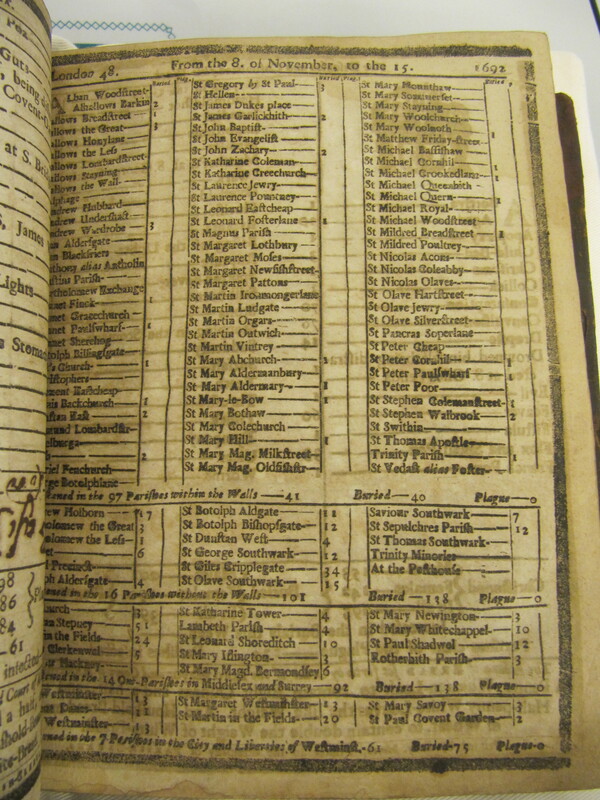 London 48. From the 8. of November, to the 15. 1692
Buried Plag. Buried Plag. Buried
Lban Woodstreet
Alhallows Barkin 2
allows Breadstreet 1
allows the Great 3
allows Honylane
allows the Less
allows Lombardstreet
allows Stayning
allows the Wall
lphage
ndrew Hubbard
ndrew Undershaft
ndrew Wardrobe 3
nn Aldersgate
nn Blackfriers
thony alias Antholin
stins Parish
rtholomew Exchange
net Finck 1
net Gracechurch
net Paulswharf 1
net Sherehog
otolph Billingsgate
s Church 1
istophers
ment Eastcheap
is Backchurch 1
stan East 2
mund Lombardstr
elburga
riel Fenchurch
rge Botolphlane
St Gregory by St Paul 3
St Hellen
St James Dukes place
St James Garlickhith 2
St John Baptist
St John Evangelist
St John Zachary 2
St Katharine Coleman
St Katharine Creechurch
St Laurence Jewry
St Laurence Pountney
St Leonard Eastcheap
St Leonard Fosterlane 1
St Magnus Parish
St Margaret Lothbury
St Margaret Moses
St Margaret Newfishstreet
St Margaret Pattons
St Martin Ironmongerlane
St Martin Ludgate
St Martin Orgars
St Martin Outwich
St Martin Vintrey
St Mary Abchurch 1
St Mary Aldermanbury
St Mary Aldermary 1
St Mary-le-Bow 1
St Mary Bothaw
St Mary Colechurch
St Mary Hill 1
St Mary Mag. Milkstreet
St Mary Mag. Oldfishstr
St Mary Mounthaw
St Mary Sommerset
St Mary Stayning
St Mary Woolchurch
St Mary Woolnoth
St Matthew Friday-street 1
St Michael Bassishaw
St Michael Cornhil
St Michael Crookedlane 1
St Michael Queenhith 1
St Michael Quern
St Michael Royal 1
St Michael Woodstreet
St Mildred Breadstreet 1
St Mildred Poultrey
St Nicolas Acons
St Nicolas Coleabby
St Nicolas Olaves
St Olave Hartstreet
St Olave Jewry
St Olave Silverstreet
St Pancras Soperlane
St Peter Cheap
St Peter Cornhil 1
St Peter Paulswharf 1
St Peter Poor
St Stephen Colemanstreet 1
St Stephen Walbrook 2
St Swithin
St Thomas Apostle
Trinity Parish 1
St Vedast alias Foster
stened in the 97 Parishes within the Walls 41 Buried 40 Plague 0
ew Holborn 17
olomew the Great 3
olomew the Less 1
et 6
l Precinct
ph Aldersgate 4
St Botolph Aldgate 11
St Botolph Bishopsgate 12
St Dunstan West 4
St George Southwark 12
St Giles Cripplegate 34
St Olave Southwark 15
Saviour Southwark 7
St Sepulchres Parish 12
St Thomas Southwark
Trinity Minories
At the Pesthouse
stened in the 16 Parishes without the Walls 101 Buried 138 Plague 0
hurch 3
an Stepney 51
in the Fields 24
Clerkenwel 5
at Hackney
St Katharine Tower 4
Lambeth Parish 4
St Leonard Shoreditch 10
St Mary Islington 3
St Mary Magd. Bermondsey 6
St Mary Newington 3
St Mary Whitechappel 10
St Paul Shadwel 12
Rotherhith Parish 3
stened in the 14 Out-Parishes in Middlesex and Surrey 92 Buried 138 Plague 0
Westminster 13
ent Danes 11
Westminster 13
St Margaret Westminster 13
St Martin in the Fields 20
St Mary Savoy 3
St Paul Covent Garden 2
ned in the 7 Parishes in the City and Liberties of Westminst. 61 Buried 75 Plague 0